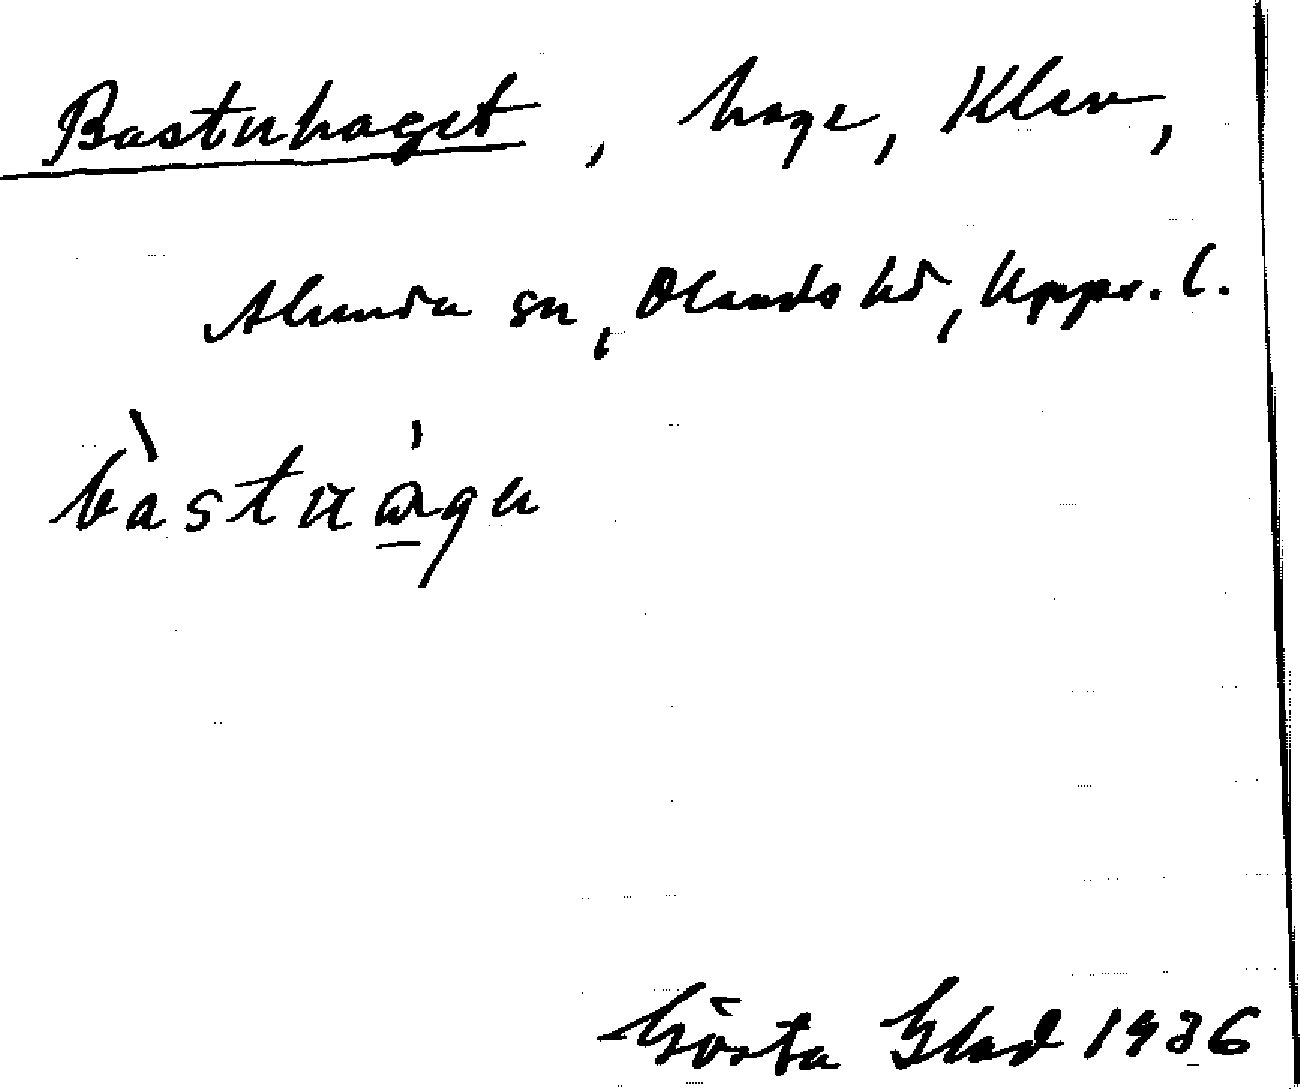 Bastuhaget, hage, Klev,
Alunda sn, Olands hd, Upps. l.
Gösta Blad 1936